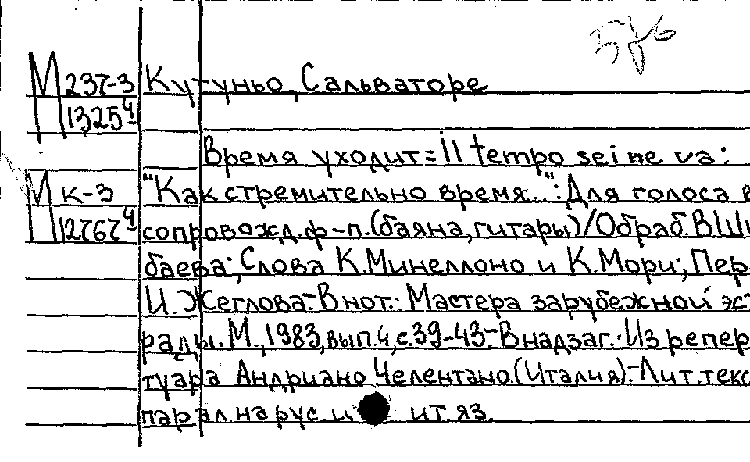 576
М 237-3 Кутуньо, Сальваторе
1325ч
Время уходит = Il tempo se i ne va:
М К-3 "Как стремительно время...": Для голоса в
12767ч сопровожд. ф-п. (баяна, гитары)/Обраб. В. Ши
баева; Слова К. Минеллоно и К. Мори; Пер.
И. Жеглова.-В нот.: Мастера зарубежной эст
рады. М., 1983, вып. 4, с. 39-43-В надзаг.: Из репер
туара Андриано Челентано (Италия)-Лит. текс
парал на рус и ит яз.